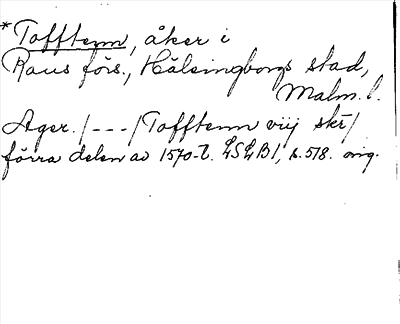 *Tofftenn, åker i
Raus förs., Hälsingborgs stad,
Malm. l.
Ager. /---/ Tofftenn viij skr/
förra delen av 1570-t. LSLB1, s. 518. orig.